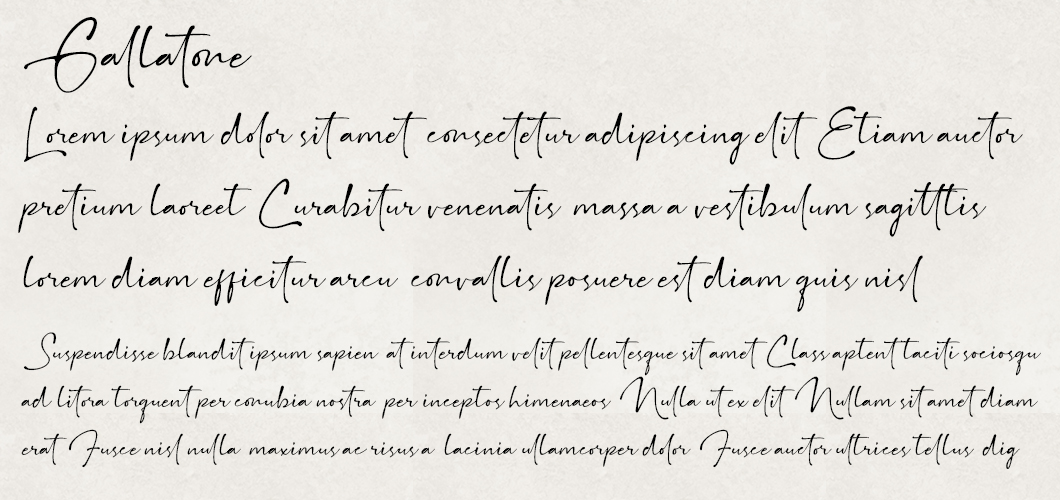 Gallatone
Lorem ipsum dolor sit amet consectetur adipiscing elit Etiam auctor
pretium laoreet Curabitur venenatis massa a vestibulum sagitttis
lorem diam efficitur arcu convallis posuere est diam quis nisl
Suspendisse blandit ipsum sapien at interdum velit pellentesque sit amet Class aptent taciti sociosqu
ad litora torquent per conubia nostra per inceptos himenaeos Nulla ut ex elit Nullam sit amet diam
erat Fusce nisl nulla maximus ac risus a lacinia ullamcorper dolor Fusce auctor ultrices tellus dig